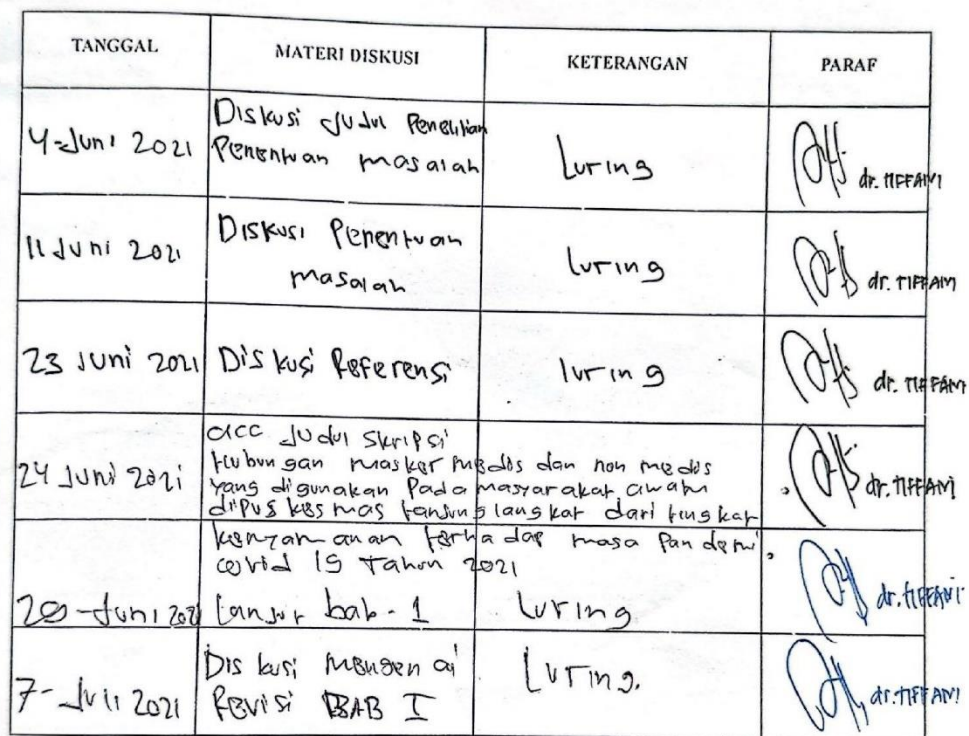 TANGGAL MATERI DISKUSI KETERANGAN PARAF
Diskusi Judul Penelitian
4-Juni 2021 Penentuan masalah Luring dr. TIFFANI
11 Juni 2021 Diskusi Penentuan
masalah Luring dr. TIFFANI
23 Juni 2021 Diskusi Referensi luring dr. TIFFANI
acc Judul Skripsi
Hubungan masker medis dan non medis
24 Juni 2021 yang digunakan Pada masyarakat awam dr. TIFFANI
dipuskesmas tanjung langkat dari tingkat
kenyamanan terhadap masa Pandemi
covid 19 Tahun 2021
Juni 2021 Lanjut bab-1 Luring dr. TIFFANI
Diskusi mengenai Luring.
7-Juli 2021 Revisi BAB I dr. TIFFANI